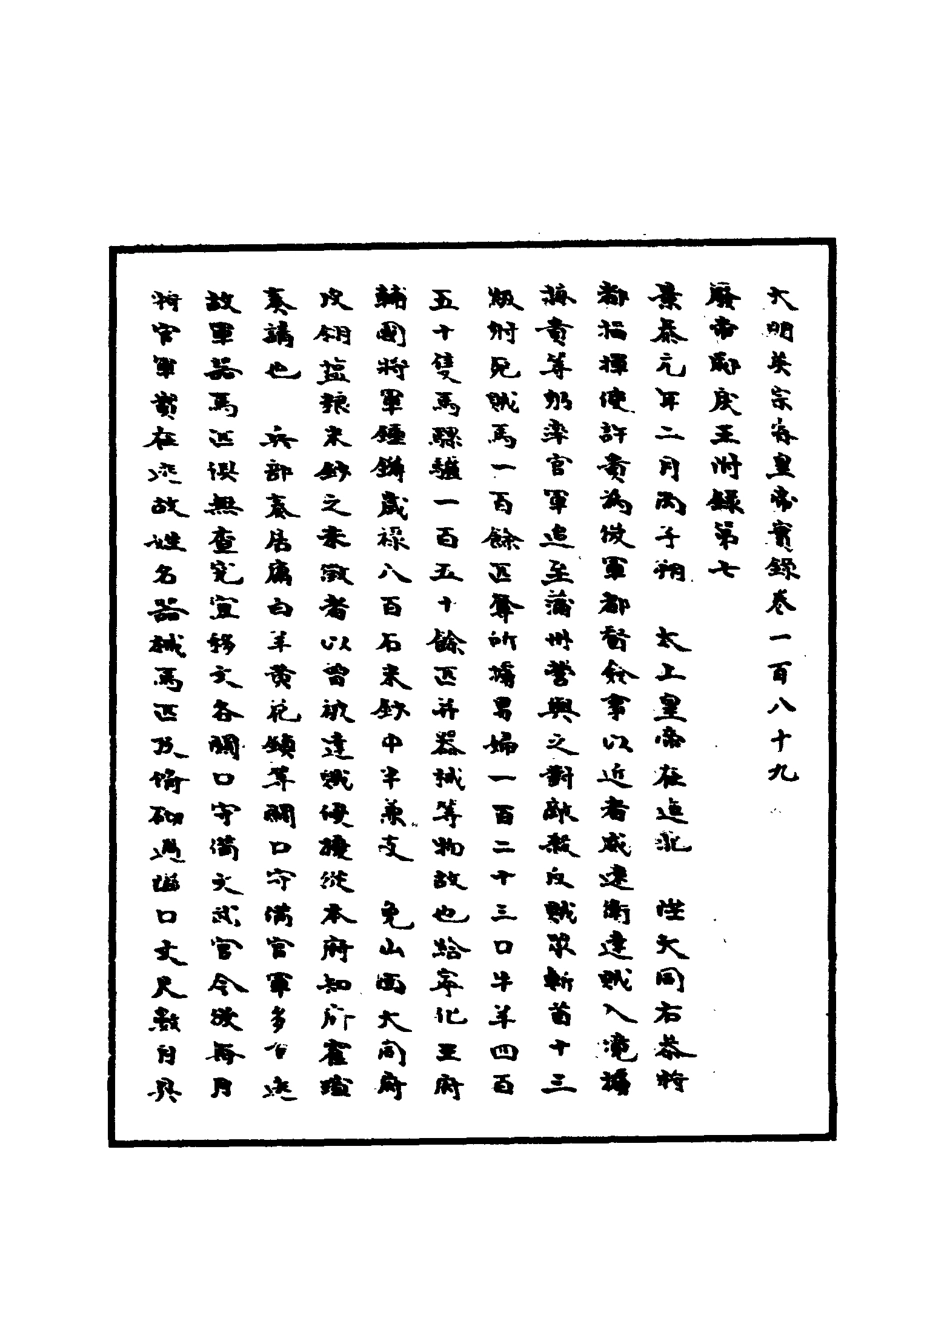 大明英宗睿皇帝實錄卷一百八十九
廢帝郕戾王附錄第七
景泰元年二月丙子朔　太上皇帝在迤北　陞大同右參將
都指揮使許貴為後軍都督僉事以近者威遠衛達賊入滝擄
蔴貴等躬率官軍追至蒲州營與之對敵殺反賊眾斬首十三
級射死賊馬一百餘匹奪所擄男婦一百二十三口牛羊四百
五十隻馬騾驢一百五十餘匹并器械等物故也給寧化王府
輔國將軍鍾鏻歲祿八百石米鈔中半兼支　免山西大同府
戌翎塩粮米鈔之未徵者以曾被達賊侵擾從本府知府霍瑄
奏請也　兵部奏居庸白羊黃花鎮等關口守備官軍多有逃
故軍器馬匹俱無查究宜移文各關口守備文武官令每月
將官軍實在逃故姓名器械馬匹及脩砌過隘口丈尺數目具